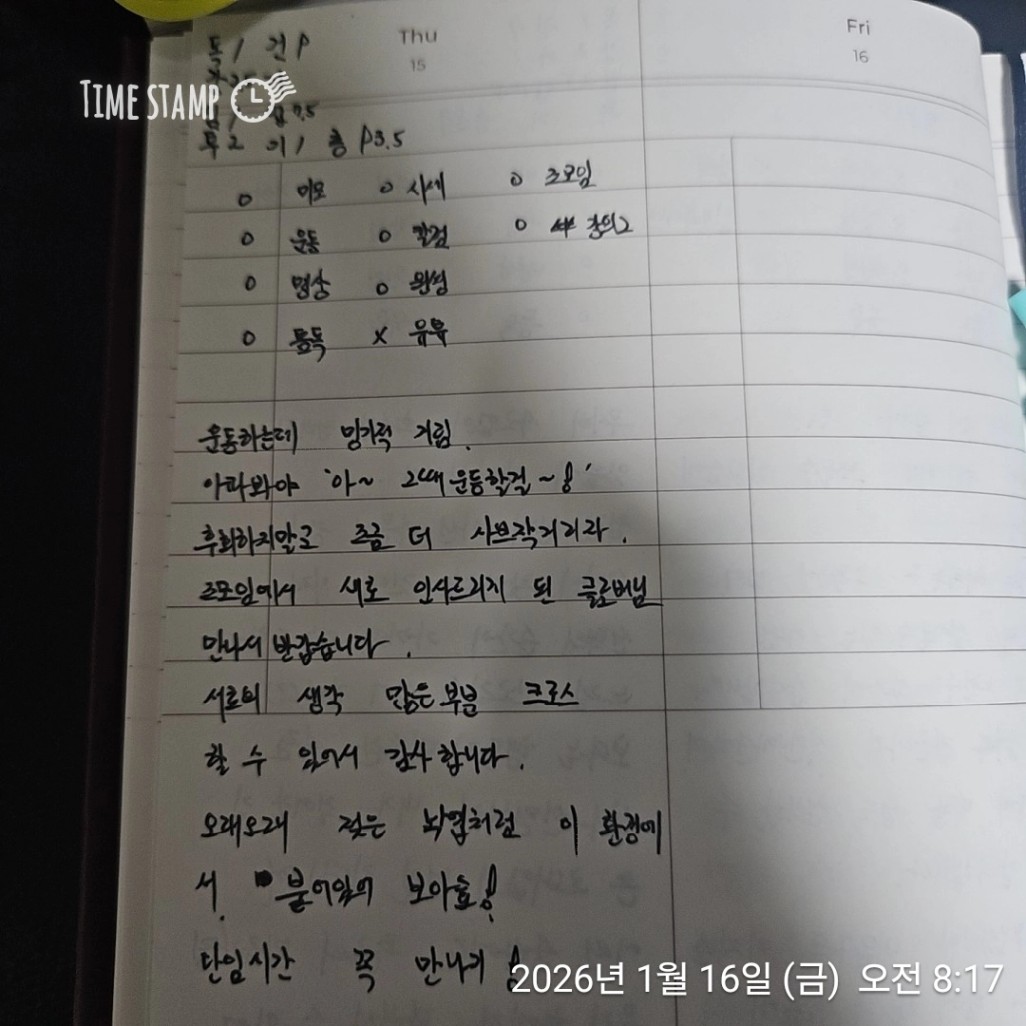 Thu
Fri
15
16
독 / 건 P
TIME STAMP
투2 의 / 총 P3.5
o 미모 o 시세 o 조모임
o 운동 o 칼럼 o 강의2
o 명상 o 완성
o 통독 x 유튜
운동하는데 밍기적 거림.
아파봐야 '아~ 그때 운동할걸~!'
후회하지말고 조금 더 사브작거리라.
조모임에서 새로 인사드리지 된 글로버님
만나서 반갑습니다.
서로의 생각 많은 부분 크로스
할 수 있어서 감사합니다.
오래오래 젖은 낙엽처럼 이 환경에
서. 붙어있어 보아요!
단임시간 꼭 만나기!
2026년 1월 16일 (금) 오전 8:17